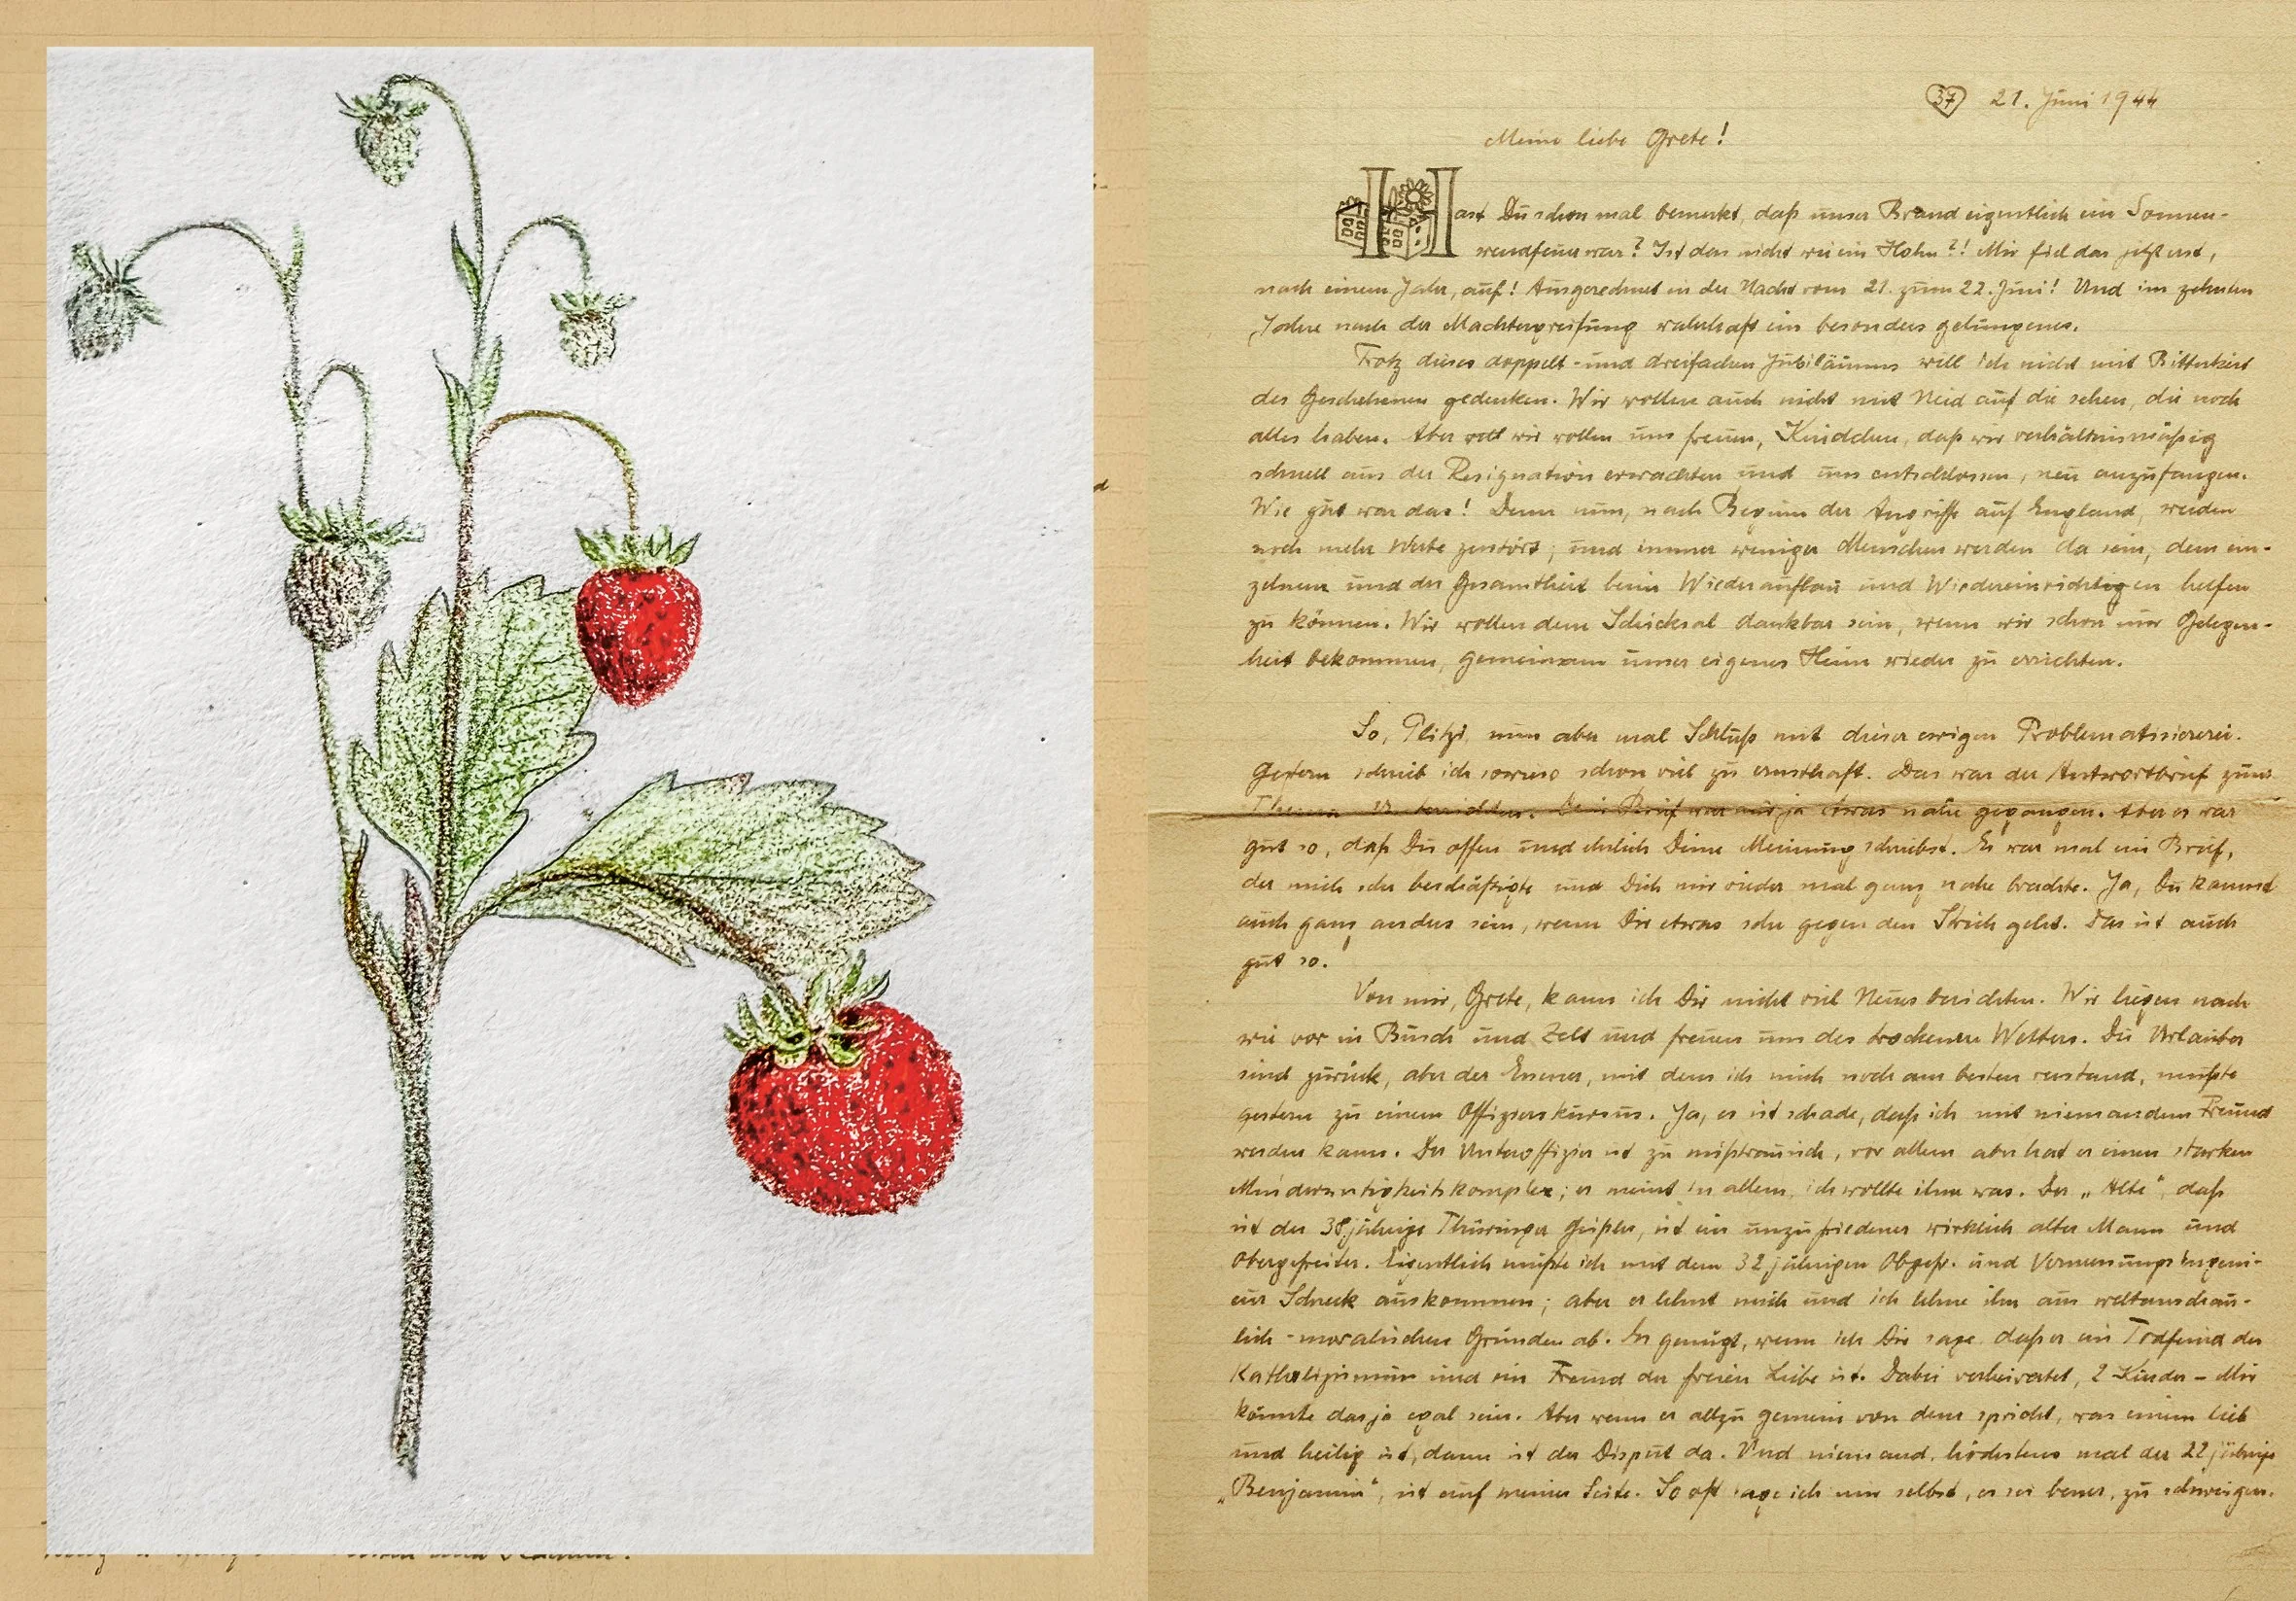 37 21. Juni 1944
Meine liebe Grete!
Hast Du schon mal bemerkt, daß unser Brand eigentlich ein Sonnen-
wendfeuer war? Ist das nicht wie ein Hohn?! Mir fiel das jetzt erst,
nach einem Jahr, auf! Ausgerechnet in der Nacht vom 21. zum 22. Juni! Und im zehnten
Jahre nach der Machtergreifung wahrhaft ein besonders gelungenes.
Trotz dieses doppelt- und dreifachen Jubiläums will ich nicht mit Bitterkeit
des Geschehenen gedenken. Wir wollen auch nicht mit Neid auf die sehen, die noch
alles haben. Aber wir wollen uns freuen, Kindchen, daß wir verhältnismäßig
schnell aus der Resignation erwachten und uns entschlossen, neu anzufangen.
Wie gut war das! Denn nun, nach Beginn der Angriffe auf England, werden
noch mehr Werte zerstört; und immer weniger Menschen werden da sein, dem ein-
zelnen und der Gesamtheit beim Wiederaufbau und Wiedereinrichten helfen
zu können. Wir wollen dem Schicksal dankbar sein, wenn wir schon nur Gelegen-
heit bekommen, gemeinsam unser eigenes Heim wieder zu errichten.
So, nun aber mal Schluß mit dieser ewigen Problematisiererei.
Gestern schrieb ich sowieso schon viel zu ernsthaft. Das war der Antwortbrief zum
Brief war mir ja etwas nahe gegangen. Aber es war
gut so, daß Du offen und ehrlich Deine Meinung schriebst. Es war mal ein Brief,
der mich sehr beschäftigte und Dich mir wieder mal ganz nahe brachte. Ja, Du kannst
auch ganz anders sein, wenn Dir etwas sehr gegen den Strich geht. Das ist auch
gut so.
Von mir, Grete, kann ich Dir nicht viel Neues berichten. Wir liegen nach
wie vor in Busch und Zelt und freuen uns des trockenen Wetters. Die Urlauber
sind zurück, aber der Essener, mit dem ich mich noch am besten verstand, mußte
gestern zu einem Offizierskursus. Ja, es ist schade, daß ich mit niemandem Freund
werden kann. Der Unteroffizier ist zu mißtrauisch, vor allem aber hat er einen starken
Minderwertigkeitskomplex; er meint in allem, ich wollte ihm was. Der „Alte“, daß
ist der 38jährige Thüringer Geißler, ist ein unzufriedener wirklich alter Mann und
Obergefreiter. Eigentlich müßte ich mit dem 32jährigen Obgefr. und Vermessungsingeni-
eur Schreck auskommen; aber er lehnt mich und ich lehne ihn aus weltanschau-
lich-moralischen Gründen ab. Es genügt, wenn ich Dir sage, daß er ein Todfeind des
Katholizismus und ein Freund der freien Liebe ist. Dabei verheiratet, 2 Kinder – Mir
könnte das ja egal sein. Aber wenn er allzu gemein von dem spricht, was einem lieb
und heilig ist, dann ist der Disput da. Und niemand, höchstens mal der 22jährige
„Benjamin“, ist auf meiner Seite. So oft sage ich mir selbst, es sei besser, zu schweigen.